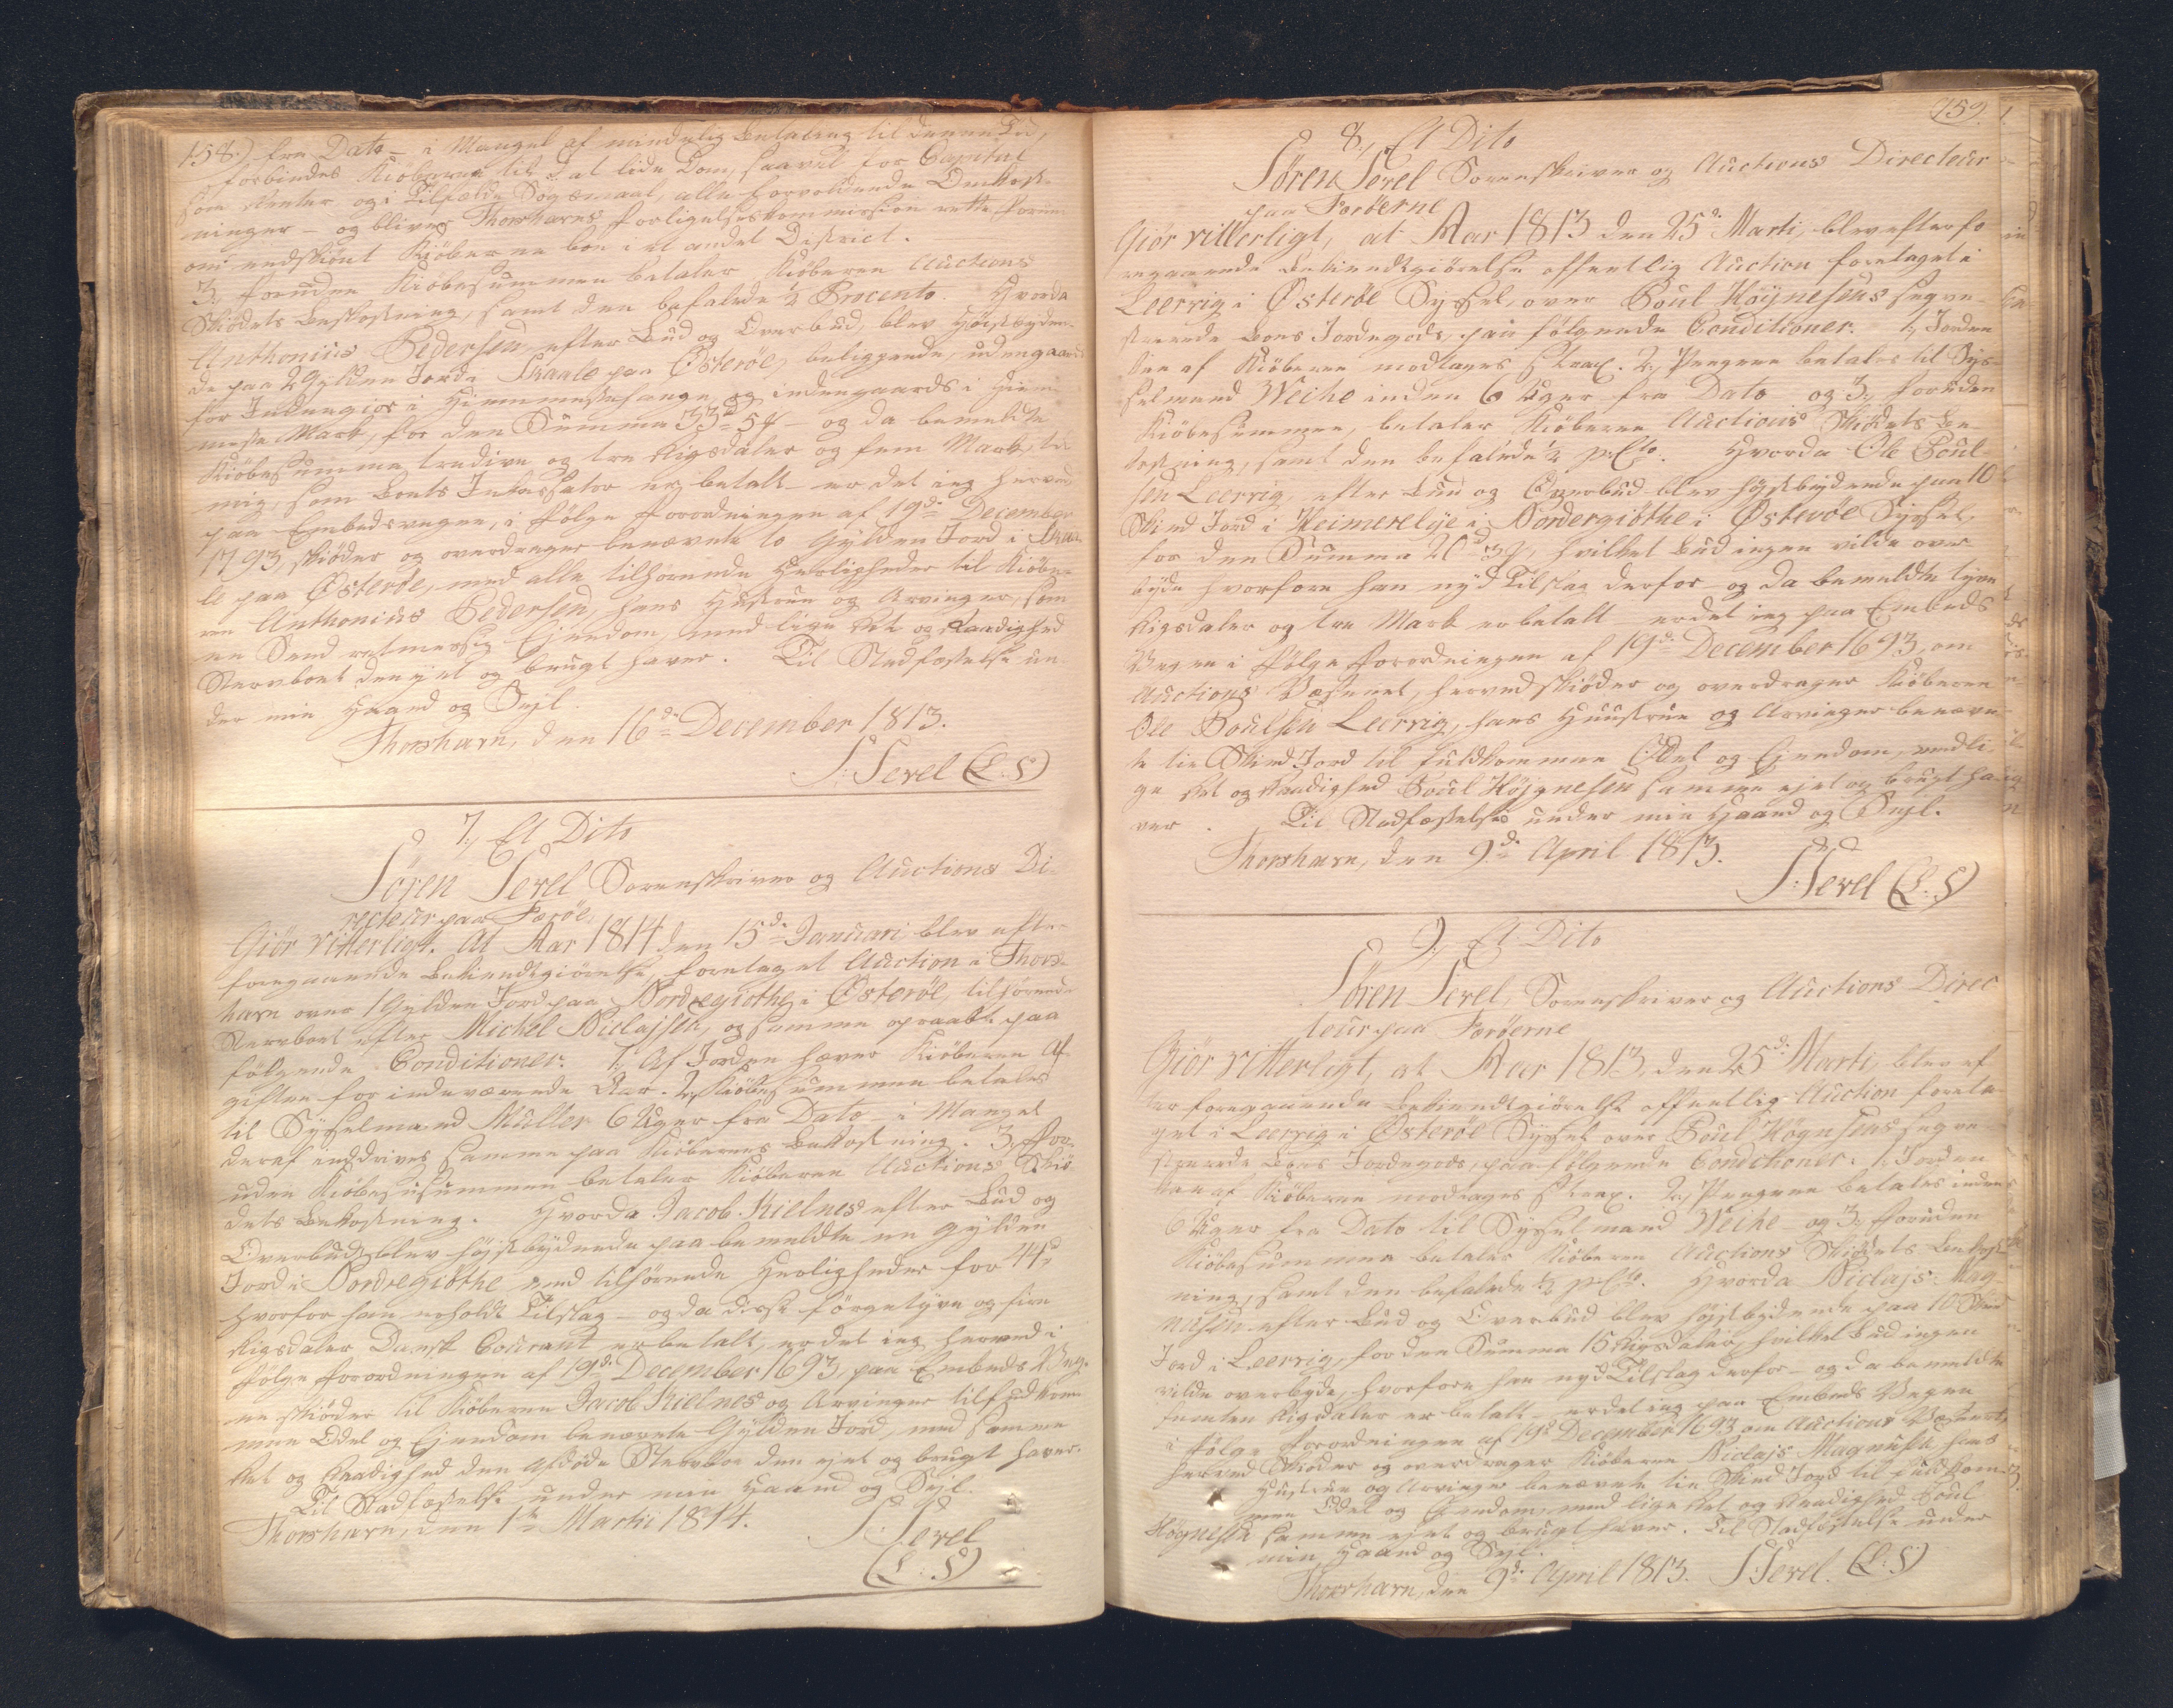 158.) fra Dato – i Mangel af mindelig Betaling til denne Tid,
forbindes Kiöberne til at lide Dom, saavel for Capital
som Renter og i Tilfælde Sögsmaal, alle forvoldende Omkost-
ninger – og bliver Thorshavns Forligelses Commission rette Forum
om endskiönt Kiöberne boe i et andet District.
3, Foruden Kiöbesummen betaler Kiöberen Auctions
Skiödets Bekostning, samt den befalede ½ Procento. Hvorda
Anthonius Pedersen efter Bud og Overbud, blev Höistbyden-
de paa 2 Gylden Jord i Skaale paa Österöe, beliggende, udengaards
for Indengior i Hiemmestehauge og indengaards i Hiem-
meste Mark, for den Summa 33 rd 5 # – og da bemeldte
Kiöbesumma, tredive og tre Rigsdaler og fem Mark, til
mig, som Boets Inkassator er betalt – er det ieg herved
paa Embedsvegne, i Fölge Forordningen af 19de December
1793, skiöder og overdrager benævnte to Gylden Jord i Skaa-
le paa Österöe, med alle tilhörende Herligheder til Kiöbe-
ren Anthonius Pedersen, hans Hustrue og Arvinger, som
en Sand retmessig Ejendom, med lige Ret og Raadighed
Stervboet den ejet og brugt haver. Til Stadfæstelse un-
der min Haand og Sejl.
Thorshavn, den 16de December 1813.
S: Sevel (L:S)
7, Et Dito
Sören Sevel Sorenskriver og Auctions Di-
recteur paa Færöe,
Giör Vitterligt. At Aar 1814 den 15de Januari blev efter
foregaaende Bekiendtgiörelse, foretaget Auction i Thors-
havn over 1 Gylden Jord paa Nordregiöthe i Österöe, tilhörende
Stervboet efter Michel Niclajsen, og samme opraabt paa
fölgende Conditioner. 1, Af Jorden hæver Kiöberen Af-
giften for indeværende Aar. 2, Kiöbesummen betales
til Sysselmand Müller 6 Uger fra Dato i Mangel
deraf inddrives samme paa Kiöberens Bekostning. 3, For-
uden Kiöbesusummen betaler Kiöberen Auctions Skiö-
dets Bekostning. Hvorda Jacob Kielnes efter Bud og
Overbud blev höjstbydende paa bemeldte en Gylden
Jord i Nordregiöthe med tilhörende Herligheder for 44 rd
hvorfor han erholdt Tilslag – og da disse förgetyve og fire
Rigsdaler Dansk Courant er betalt, er det ieg herved i
Fölge Forordningen af 19de December 1693, paa Embeds Veg-
ne skiöder til Kiöberen Jacob Kielnes og Arvinger til fuldkom-
men Odel og Ejendom benævnte Gylden Jord, med samme
Ret og Raadighed den Afdöde Stervboe den ejet og brugt haver.
Til Stadfæstelse under min Haand og Sejl.
Thorshavn, den 1te Martii 1814.
S: Sevel
(L:S)
159.
8, Et Dito
Sören Sevel Sorenskriver og Auctions Directeur
paa Færöerne
Giör vitterligt, at Aar 1813 den 25de Marti, blev efter fo
regaaende Bekiendtgiörelse offentlig Auction foretaget i
Leervig i Österöe Syssel, over Poul Höÿnesens seqve-
strerede Boes Jordegods, paa fölgende Conditioner. 1, Jorden
kan af Kiöberen modtages Strax. 2, Pengene betales til Sys-
selmand Weihe inden 6 Uger fra Dato og 3, foruden
Kiöbesummen, betaler Kiöberen Auctions Skiödets Be-
kostning, samt den befalede ½ pCto. Hvorda Ole Poul-
sen Leervig, efter Bud og Overbud blev höjstbydende paa 10
Skind Jord i Heimerelÿe i Nordergiöthe i Österöe Syssel,
for den Summa 20 rd 3 #, hvilket Bud ingen vilde over-
byde hvorfore han nyd Tilslag derfor – og da bemeldte tyve
Rigsdaler og tre Mark er betalt er det ieg paa Embeds
Vegne i Fölge Forordningen af 19de December 1693, om
Auctions Væsenet, herved skiöder og overdrager Kiöberen
Ole Poulsen Leervig, hans Huustrue og Arvinger benævn-
te tie Skind Jord til fuldkommen Odel og Ejendom, med li-
ge Ret og Raadighed Poul Höjgnesen samme ejet og brugt ha-
ver. Til Stadfæstelse under min Haand og Sejl.
Thorshavn, den 9de April 1813.
S: Sevel (L:S)
9, Et Dito
Sören Sevel, Sorenskriver og Auctions Direc
teur paa Færöerne
Giör vitterligt, at Aar 1813, den 25de Marti, blev ef-
ter foregaaende Bekiendtgiörelse offentlig Auction foreta-
get i Leervig i Österöe Syssel over Poul Högnesens seqve-
strerede Boes Jordegods, paa fölgende Conditioner. 1, Jorden
kan af Kiöberen modtages Strax. 2, Pengene betales inden
6 Uger fra Dato til Sysselmand Weihe – og 3, foruden
Kiöbesummen betaler Kiöberen Auctions Skiödets Bekost
ning, samt den befalede ½ pCto. Hvorda Niclajs Mag-
nusen efter Bud og Overbud blev höjstbydende paa 10 Skind
Jord i Leervig, for den Summa 15 Rigsdaler, hvilket Bud ingen
vilde overbyde, hvorfore han nyd Tilslag derfor – og da bemeldte
femten Rigsdaler er betalt – er det ieg paa Embeds Vegne
i Fölge Forordningen af 19de December 1693 om Auctions Væsenet,
herved Skiöder og overdrager Kiöberen Niclajs Magnusen hans
Hustrue og Arvinger benævnte tie Skind Jord til fuldkom-
men Odel og Ejendom, med lige Ret og Raadighed Poul
Högnesen samme ejet og brugt haver. Til Stadfæstelse under
min Haand og Sejl.
Thorshavn, den 9de April 1813. S: Sevel. (L:S)